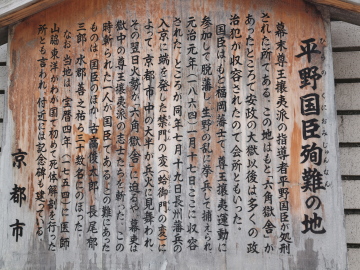 平野国臣殉難の地
幕末尊王攘夷派の指導者平野国臣が処刑
された所である。この地はもと「六角獄舎」が
あったところで、安政の大獄以後は多くの政
治犯が収容されたので会所ともいった。
国臣はもと福岡藩士で、尊王攘夷運動に
参加して脱藩し、生野の乱に挙兵して捕えられ
元治元年(一八六四)一月十七日ここに収容
された。ところが同年七月十九日長州藩兵の
入京に端を発した禁門の変(蛤御門の変)に
よって、京都市中の大半が兵火に見舞われ、
その翌日火勢が六角獄舎に迫るや、幕吏は
獄中の尊王攘夷派の志士たちを斬った。この
時斬られた一人が国臣である。この難にあった
ものは、国臣のほか古高俊太郎、長尾郁
三郎、水郡善之祐ら三十数名にのぼった。
なお、当地は、宝暦四年(一七五四)に医師
山脇東洋がわが国で初めて死体解剖を行った
所とも言われ、付近には記念碑も建っている。
京都市